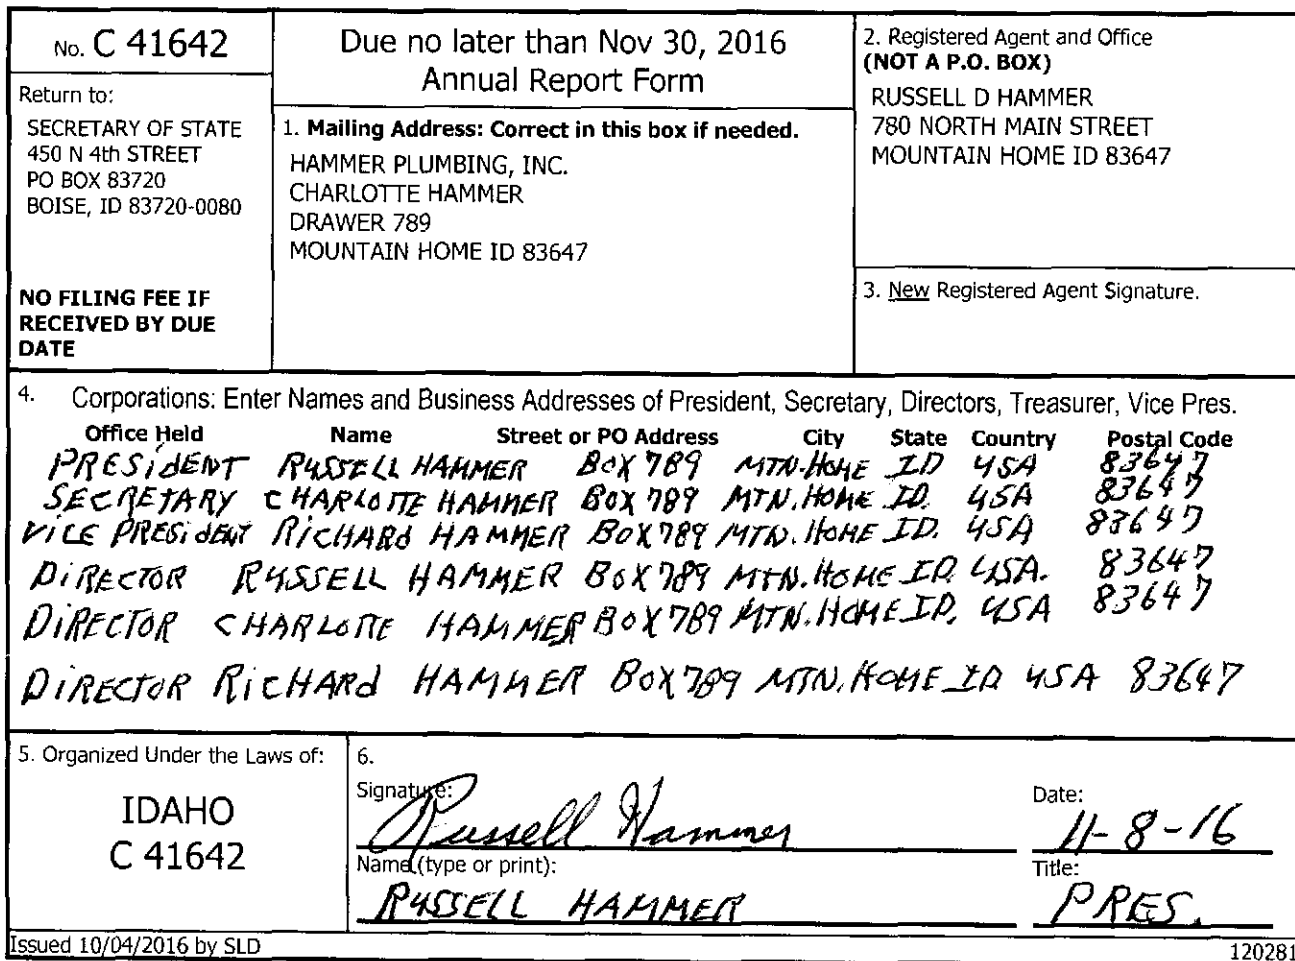 No. C 41642
Return to:
SECRETARY OF STATE
450 N 4th STREET
PO BOX 83720
BOISE, ID 83720-0080
NO FILING FEE IF
RECEIVED BY DUE
DATE
Due no later than Nov 30, 2016
Annual Report Form
1. Mailing Address: Correct in this box if needed.
HAMMER PLUMBING, INC.
CHARLOTTE HAMMER
DRAWER 789
MOUNTAIN HOME ID 83647
2. Registered Agent and Office
(NOT A P.O. BOX)
RUSSELL D HAMMER
780 NORTH MAIN STREET
MOUNTAIN HOME ID 83647
3. New Registered Agent Signature.
4. Corporations: Enter Names and Business Addresses of President, Secretary, Directors, Treasurer, Vice Pres.
Office Held Name Street or PO Address City State Country Postal Code
PRESIDENT RUSSELL HAMMER BOX 789 MTN. HOME ID USA 83647
SECRETARY CHARLOTTE HAMMER BOX 789 MTN. HOME ID. USA 83647
VICE PRESIDENT RICHARD HAMMER BOX 789 MTN. HOME ID. USA 83647
DIRECTOR RUSSELL HAMMER BOX 789 MTN. HOME ID. USA. 83647
DIRECTOR CHARLOTTE HAMMER BOX 789 MTN. HOME ID. USA 83647
DIRECTOR RICHARD HAMMER BOX 789 MTN. HOME ID USA 83647
5. Organized Under the Laws of:
IDAHO
C 41642
6.
Signature: Russell Hammer
Date: 11-8-16
Name (type or print): RUSSELL HAMMER
Title: PRES.
Issued 10/04/2016 by SLD
120281